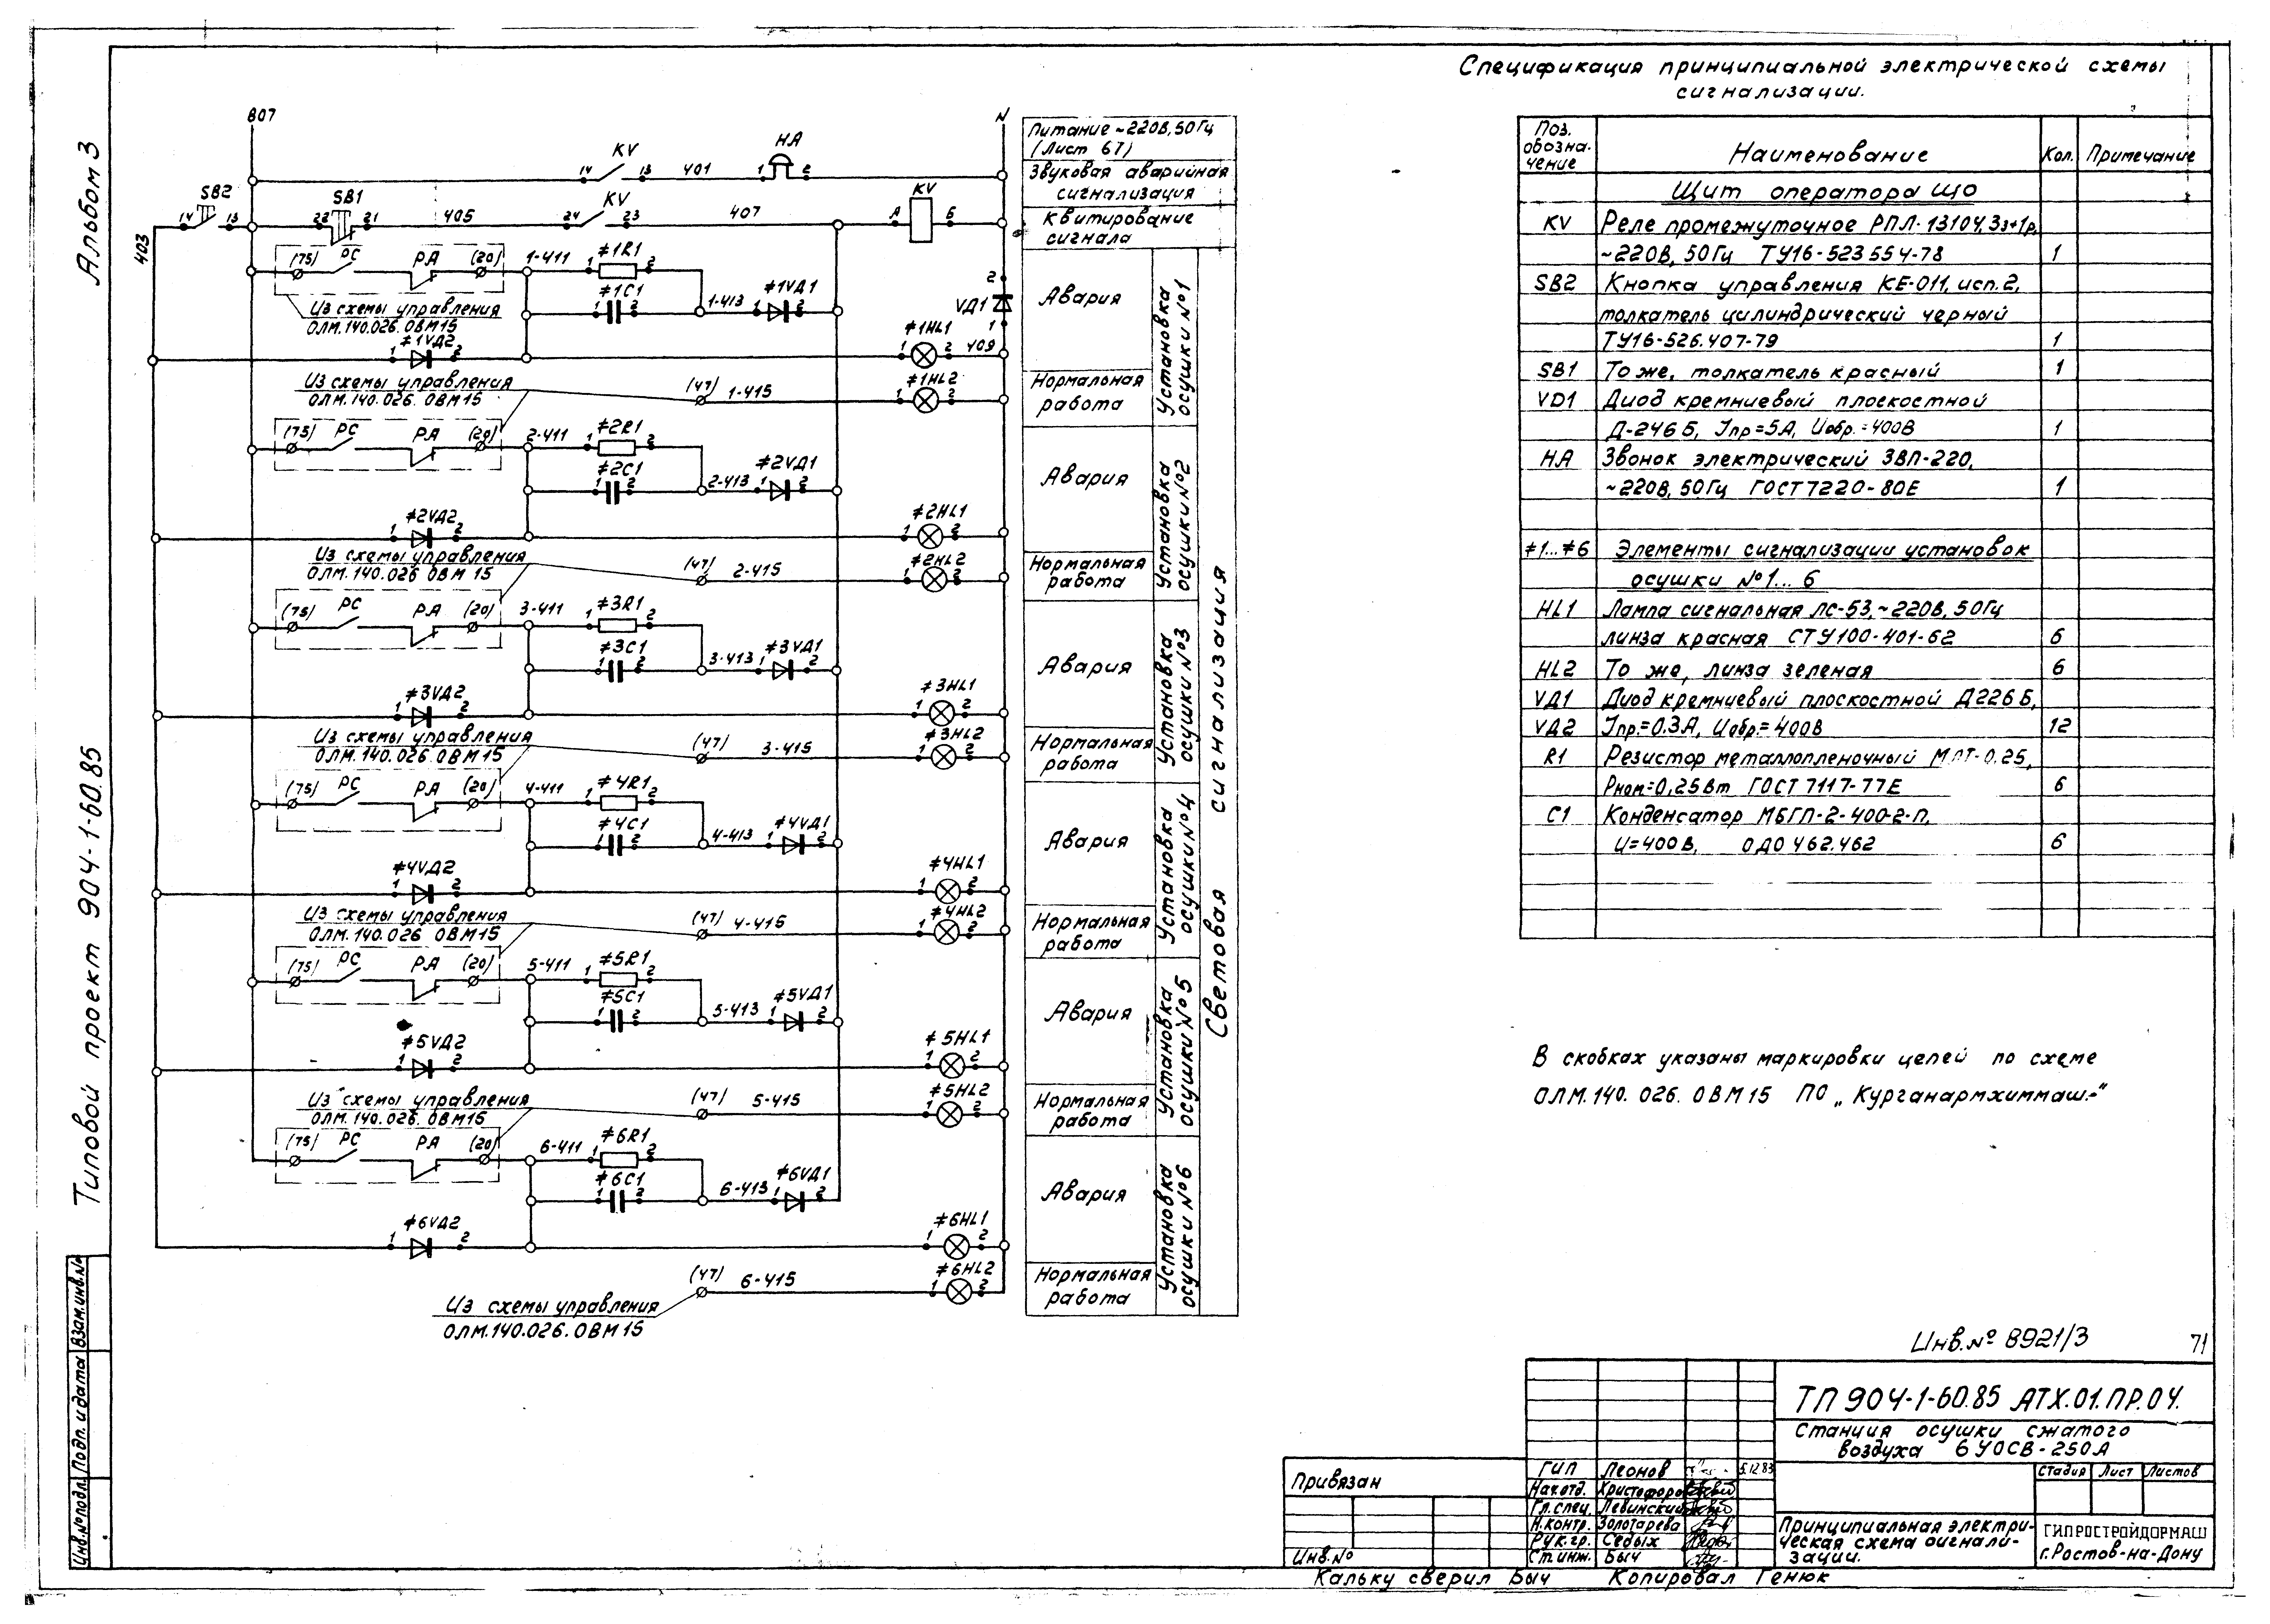 Альбом 3
Типовой проект 904-1-60.85
Взам.инв.№
Подп. и дата
Инв.№подл.
Спецификация принципиальной электрической схемы
сигнализации.
807
N
KV
14
13
401
HA
1
2
SB2
14
13
SB1
22
21
405
24
KV
23
407
А
KV
Б
403
(75)
РС
РА
(20)
1-411
≠1R1
≠1C1
1-413
≠1VД1
VД1
Из схемы управления
ОЛМ.140.026.ОВМ15
≠1VД2
≠1HL1
409
Из схемы управления
ОЛМ.140.026.ОВМ15
(47)
1-415
≠1HL2
(75)
РС
РА
(20)
2-411
≠2R1
≠2C1
2-413
≠2VД1
≠2VД2
≠2HL1
Из схемы управления
ОЛМ.140.026 ОВМ 15
(47)
2-415
≠2HL2
(75)
РС
РА
(20)
3-411
≠3R1
≠3C1
3-413
≠3VД1
≠3VД2
≠3HL1
Из схемы управления
ОЛМ.140.026.ОВМ15
(47)
3-415
≠3HL2
(75)
РС
РА
(20)
4-411
≠4R1
≠4C1
4-413
≠4VД1
≠4VД2
≠4HL1
Из схемы управления
ОЛМ.140.026 ОВМ15
(47)
4-415
≠4HL2
(75)
РС
РА
(20)
5-411
≠5R1
≠5C1
5-413
≠5VД1
≠5VД2
≠5HL1
Из схемы управления
ОЛМ.140.026.ОВМ15
(47)
5-415
≠5HL2
(75)
РС
РА
(20)
6-411
≠6R1
≠6C1
6-413
≠6VД1
≠6VД2
≠6HL1
(47)
6-415
≠6HL2
Из схемы управления
ОЛМ.140.026.ОВМ15
Питание ~220В,50Гц
(Лист 67)
Звуковая аварийная
сигнализация
Квитирование
сигнала
Авария
Нормальная
работа
Установка
осушки №1
Авария
Нормальная
работа
Установка
осушки №2
Авария
Нормальная
работа
Установка
осушки №3
Авария
Нормальная
работа
Установка
осушки №4
Авария
Нормальная
работа
Установка
осушки №5
Авария
Нормальная
работа
Установка
осушки №6
Световая сигнализация
Поз. обозна-чение Наименование Кол. Примечание
Щит оператора ЩО
KV Реле промежуточное РПЛ-13104, 3з+1р,
~220В, 50Гц ТУ16-523 554-78 1
SB2 Кнопка управления КЕ-011, исп.2,
толкатель цилиндрический черный
ТУ16-526.407-79 1
SB1 То же, толкатель красный 1
VD1 Диод кремниевый плоскостной
Д-246Б, Iпр=5А, Uобр.=400В 1
HA Звонок электрический ЗВП-220,
~220В, 50Гц ГОСТ 7220-80Е 1
≠1...≠6 Элементы сигнализации установок
осушки №1...6
HL1 Лампа сигнальная ЛС-53,~220В, 50Гц
линза красная СТУ100-401-62 6
HL2 То же, линза зеленая 6
VД1 Диод кремниевый плоскостной Д226Б,
VД2 Iпр.=0.3А, Uобр.=400В 12
R1 Резистор металлопленочный МЛТ-0.25,
Рном=0,25Вт ГОСТ 7117-77Е 6
C1 Конденсатор МБГП-2-400-2-П,
U=400В, ОДО 462.462 6
В скобках указаны маркировки цепей по схеме
ОЛМ.140.026.ОВМ15 ПО „Курганармхиммаш."
Инв.№ 8921/3
71
ТП 904-1-60.85 АТХ.01.ПР.04.
Станция осушки сжатого
воздуха 6УОСВ-250А
Стадия Лист Листов
Принципиальная электри-
ческая схема сигнали-
зации.
ГИПРОСТРОЙДОРМАШ
г.Ростов-на-Дону
Привязан
Инв.№
ГИП Леонов 5.12.83
Нач.отд. Христофоров
Гл.спец. Левинский
Н.контр. Золотарева
Рук.гр. Седых
Ст.инж. Быч
Кальку сверил Быч Копировал Генюк